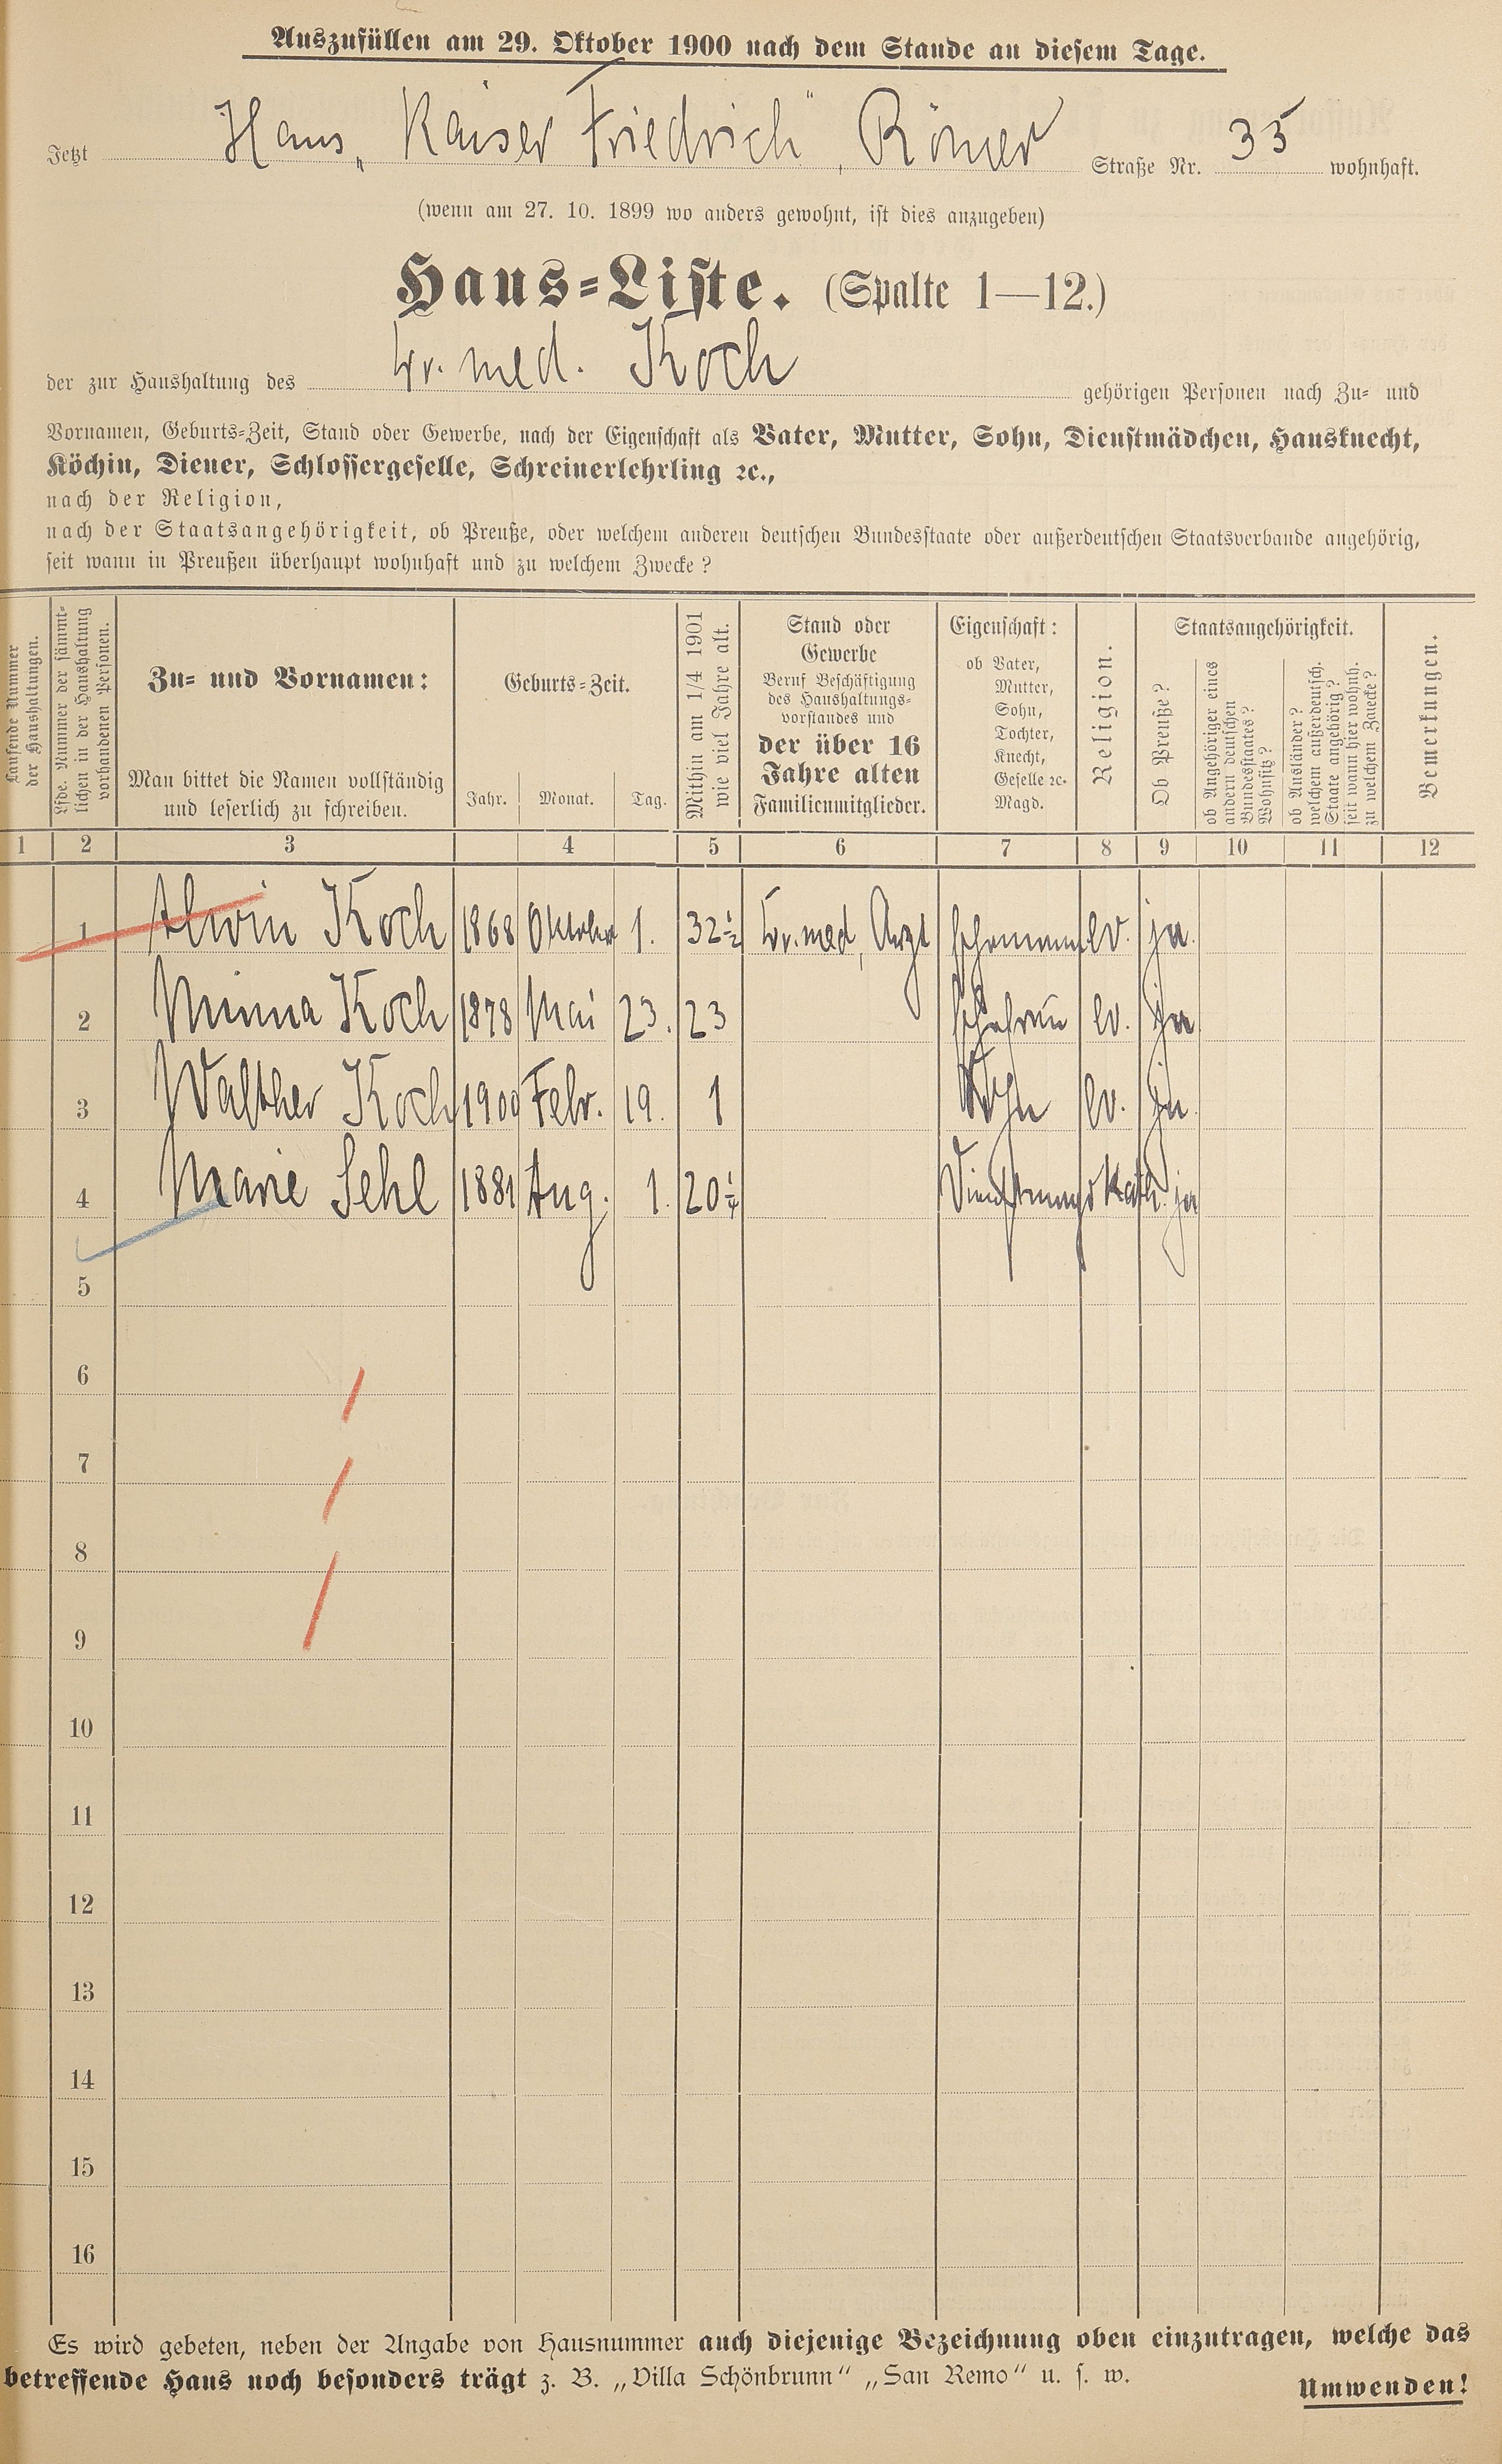 Auszufüllen am 29. Oktober 1900 nach dem Stande an diesem Tage.
Jetzt Haus „Kaiser Friedrich“, Römer Straße Nr. 35 wohnhaft.
(wenn am 27. 10. 1899 wo anders gewohnt, ist dies anzugeben)
Haus=Liste. (Spalte 1—12.)
der zur Haushaltung des Dr. med. Koch gehörigen Personen nach Zu= und
Vornamen, Geburts=Zeit, Stand oder Gewerbe, nach der Eigenschaft als Vater, Mutter, Sohn, Dienstmädchen, Hausknecht,
Köchin, Diener, Schlossergeselle, Schreinerlehrling ꝛc.,
nach der Religion,
nach der Staatsangehörigkeit, ob Preuße, oder welchem anderen deutschen Bundesstaate oder außerdeutschen Staatsverbande angehörig,
seit wann in Preußen überhaupt wohnhaft und zu welchem Zwecke?
Laufende Nummer
der Haushaltungen.
Lfde. Nummer der sämmt=
lichen in der Haushaltung
vorhandenen Personen.
Zu= und Vornamen:
Man bittet die Namen vollständig
und leserlich zu schreiben.
Geburts=Zeit.
Jahr. Monat. Tag.
Mithin am 1/4 1901
wie viel Jahre alt.
Stand oder
Gewerbe
Beruf Beschäftigung
des Haushaltungs=
vorstandes und
der über 16
Jahre alten
Familienmitglieder.
Eigenschaft:
ob Vater,
Mutter,
Sohn,
Tochter,
Knecht,
Geselle ꝛc.
Magd.
Religion.
Staatsangehörigkeit.
Ob Preuße?
ob Angehöriger eines
andern deutschen
Bundesstaates?
Wohnsitz?
ob Ausländer?
welchem außerdeutsch.
Staate angehörig?
seit wann hier wohnh.
zu welchem Zwecke?
Bemerkungen.
1 2 3 4 5 6 7 8 9 10 11 12
1 Alwin Koch 1868 Oktober 1. 32½ Dr. med, Arzt Ehemann ev. ja.
2 Minna Koch 1878 Mai 23. 23 Ehefrau ev. ja
3 Walther Koch 1900 Febr. 19. 1 Sohn ev. ja.
4 Marie Sehl 1881 Aug. 1. 20¼ Dienstmagd Kath. ja
5
6
7
8
9
10
11
12
13
14
15
16
Es wird gebeten, neben der Angabe von Hausnummer auch diejenige Bezeichnung oben einzutragen, welche das
betreffende Haus noch besonders trägt z. B. „Villa Schönbrunn“ „San Remo“ u. s. w.
Umwenden!